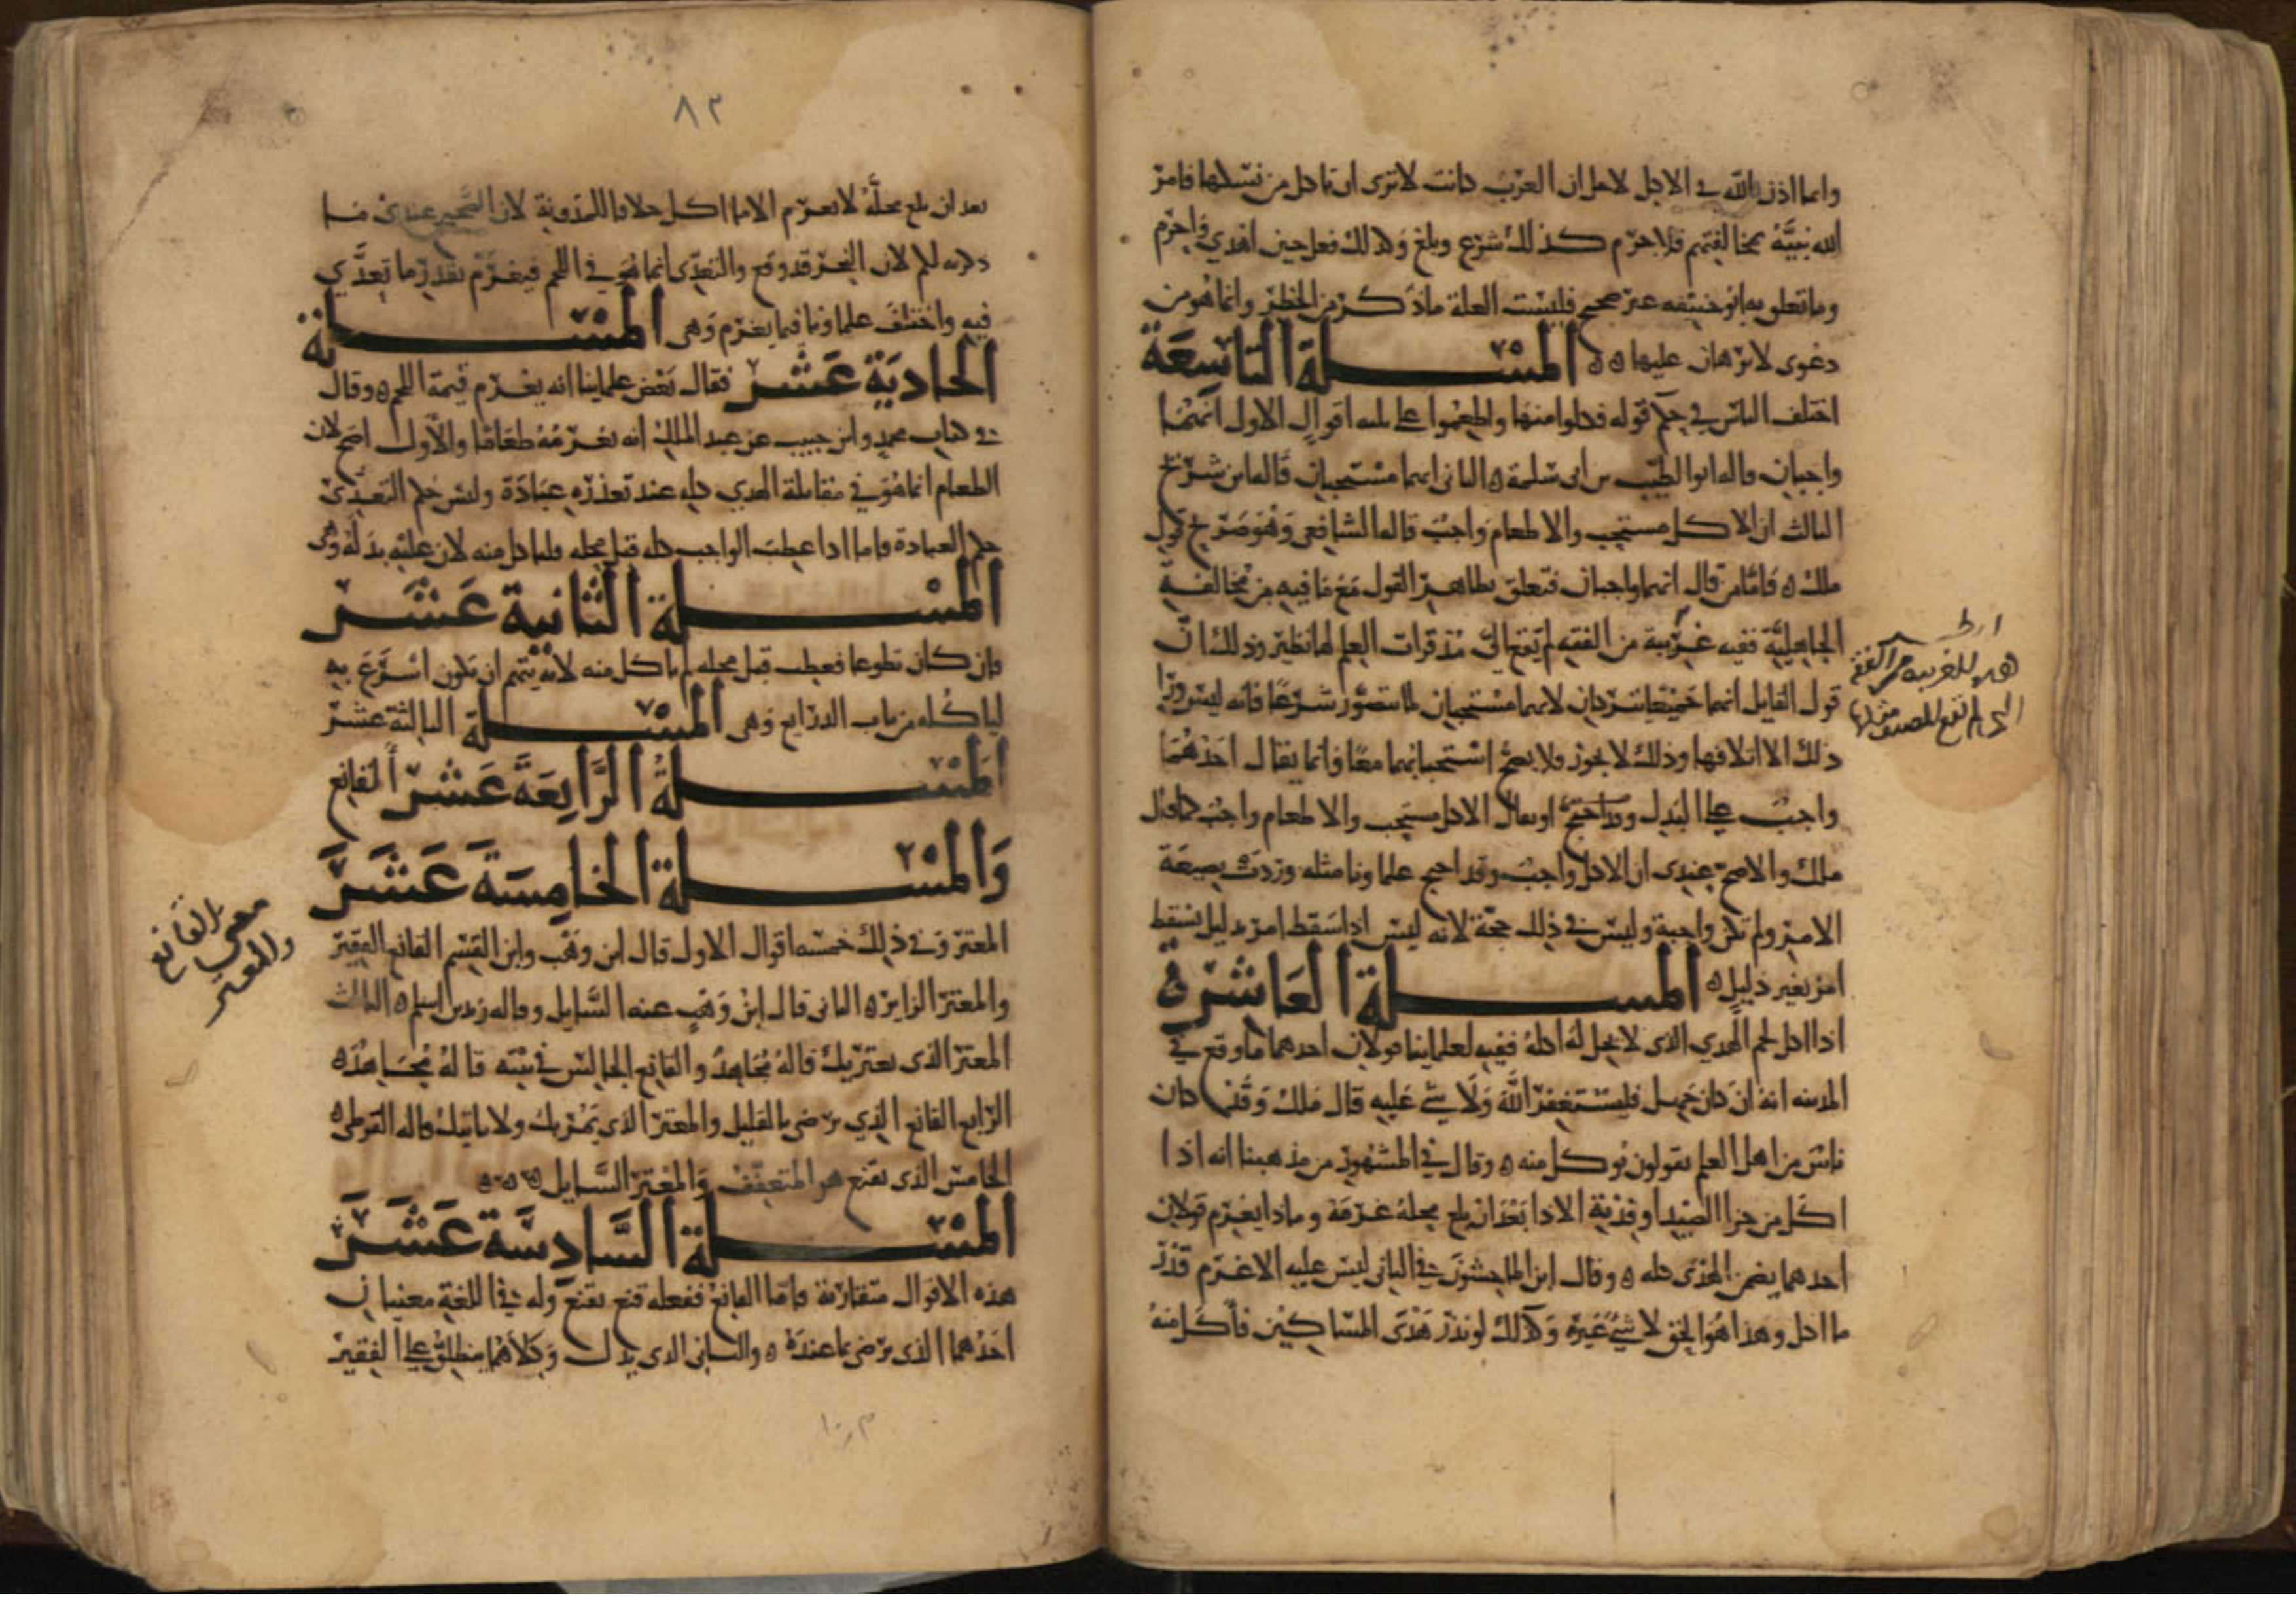 وانما اذن الله في الاكل لاجل ان العرب كانت لا ترى ان تاكل من نسكها فامر
الله نبيه بمخالفتهم فلا جرم كذلك شرع وبلغ وكذلك فعل حين اهدي واحرم
وما تعلق به ابو حنيفه غير صحيح فليست العلة ما ذكر من الحظر وانما هو من
دعوى لا برهان عليها ه ه المسلة التاسعة
اختلف الناس في حكم قوله فكلوا منها واطعموا على ثلثه اقوال الاول انهما
واجبان قاله ابو الطيب بن ابي سلمة ه الثاني انهما مستحبان قاله ابن شريح
الثالث ان الاكل مستحب والاطعام واجب قاله الشافعي وهو صريح قول
ملك ه فاما من قال انهما واجبان فتعلق بظاهر القول مع ما فيه من مخالفة
الجاهلية ففيه غريبة من الفقه لم يقع الي مذ قرات العلم لها نظير وذلك ان
قول القايل انهما جميعا يتركان لانهما مستحبان لما تتصور شرعا فانه ليس ورا
ذلك الا اتلافها وذلك لا يجوز ولا يصح استحبابهما معا وانما يقال احدهما
واجب على البدل او يقال الاكل مستحب والاطعام واجب كما قال
ملك والاصح عندي ان الاكل واجب وقد احتج علماونا مثله وردت بصيغة
الامر ولم تكن واجبة وليس في ذلك حجة لانه ليس اذا سقط امر بدليل يسقط
امر بغير دليل ه المسلة العاشرة
اذا اكل لحم الهدي الذي لا يحل له اكله ففيه لعلماينا قولان احدهما ما وقع في
المدينه انه ان كان جهل فليستغفر الله ولا شي عليه قال ملك وقد كان
ناس من اهل العلم يقولون يوكل منه ه وقال في المشهور من مذهبنا انه اذا
اكل من جزا الصيد او فدية الاذا بعد ان بلغ محله غرمه وماذا يغرم قولان
احدهما يضمن الهدى كله ه وقال ابن الماجشون في الثاني ليس عليه الا غرم قدر
ما اكل وهذا هو الحق لا شي غيره وكذلك لو نذر هدى المساكين فاكل منه
هذه الغريبة من الفقه
التي لم تقع للمصنف
٨٣
بعد ان بلغ محله لا يغرم الا ما اكل خلافا للمدونة لان الصحيح عندي ما
ذكرته لكم لان النحر قد وقع والتعدي انما هو في اللحم فيغرم بقدر ما تعدي
فيه واختلف علماونا فيما يغرم وهي المسلة
الحادية عشر فقال بعض علماينا انه يغرم قيمة اللحم ه وقال
في كتاب محمد وابن حبيب عن عبد الملك انه يغرمه طعاما والاول اصح لان
الطعام انما هو في مقابلة الهدي كله عند تعذره عبادة وليس حكم التعدي
حكم العبادة فاما اذا عطب الواجب كله قبل محله فلياكل منه لان عليه بدله وهى
المسلة الثانية عشر
فان كان تطوعا فعطب قبل محله لم ياكل منه لانه يتهم ان يكون اسرع به
لياكله من باب الذرايع وهي المسلة الثالثة عشر
المسلة الرابعة عشر القانع
والمسلة الخامسة عشر
المعتر وفي ذلك خمسه اقوال الاول قال ابن وهب وابن القسم القانع الفقير
والمعتر الزاير ه الثاني قال ابن وهب عنه السايل وقاله زيد بن اسلم ه الثالث
المعتر الذي يعتريك قاله مجاهد والقانع الجالس في بيته قاله مجاهد ه
الرابع القانع الذي يرضى بالقليل والمعتر الذي يمر بك ولا ياتيك قاله القرطى ه
الخامس الذى يقنع هو المتعفف والمعتر السايل ه ه ه
المسلة السادسة عشر
هذه الاقوال متقاربة فاما القانع ففعله قنع يقنع وله في اللغة معنيان
احدهما الذى يرضى بما عنده ه والثاني الذى يذل وكلاهما ينطلق على الفقير
معنى القانع
والمعتر